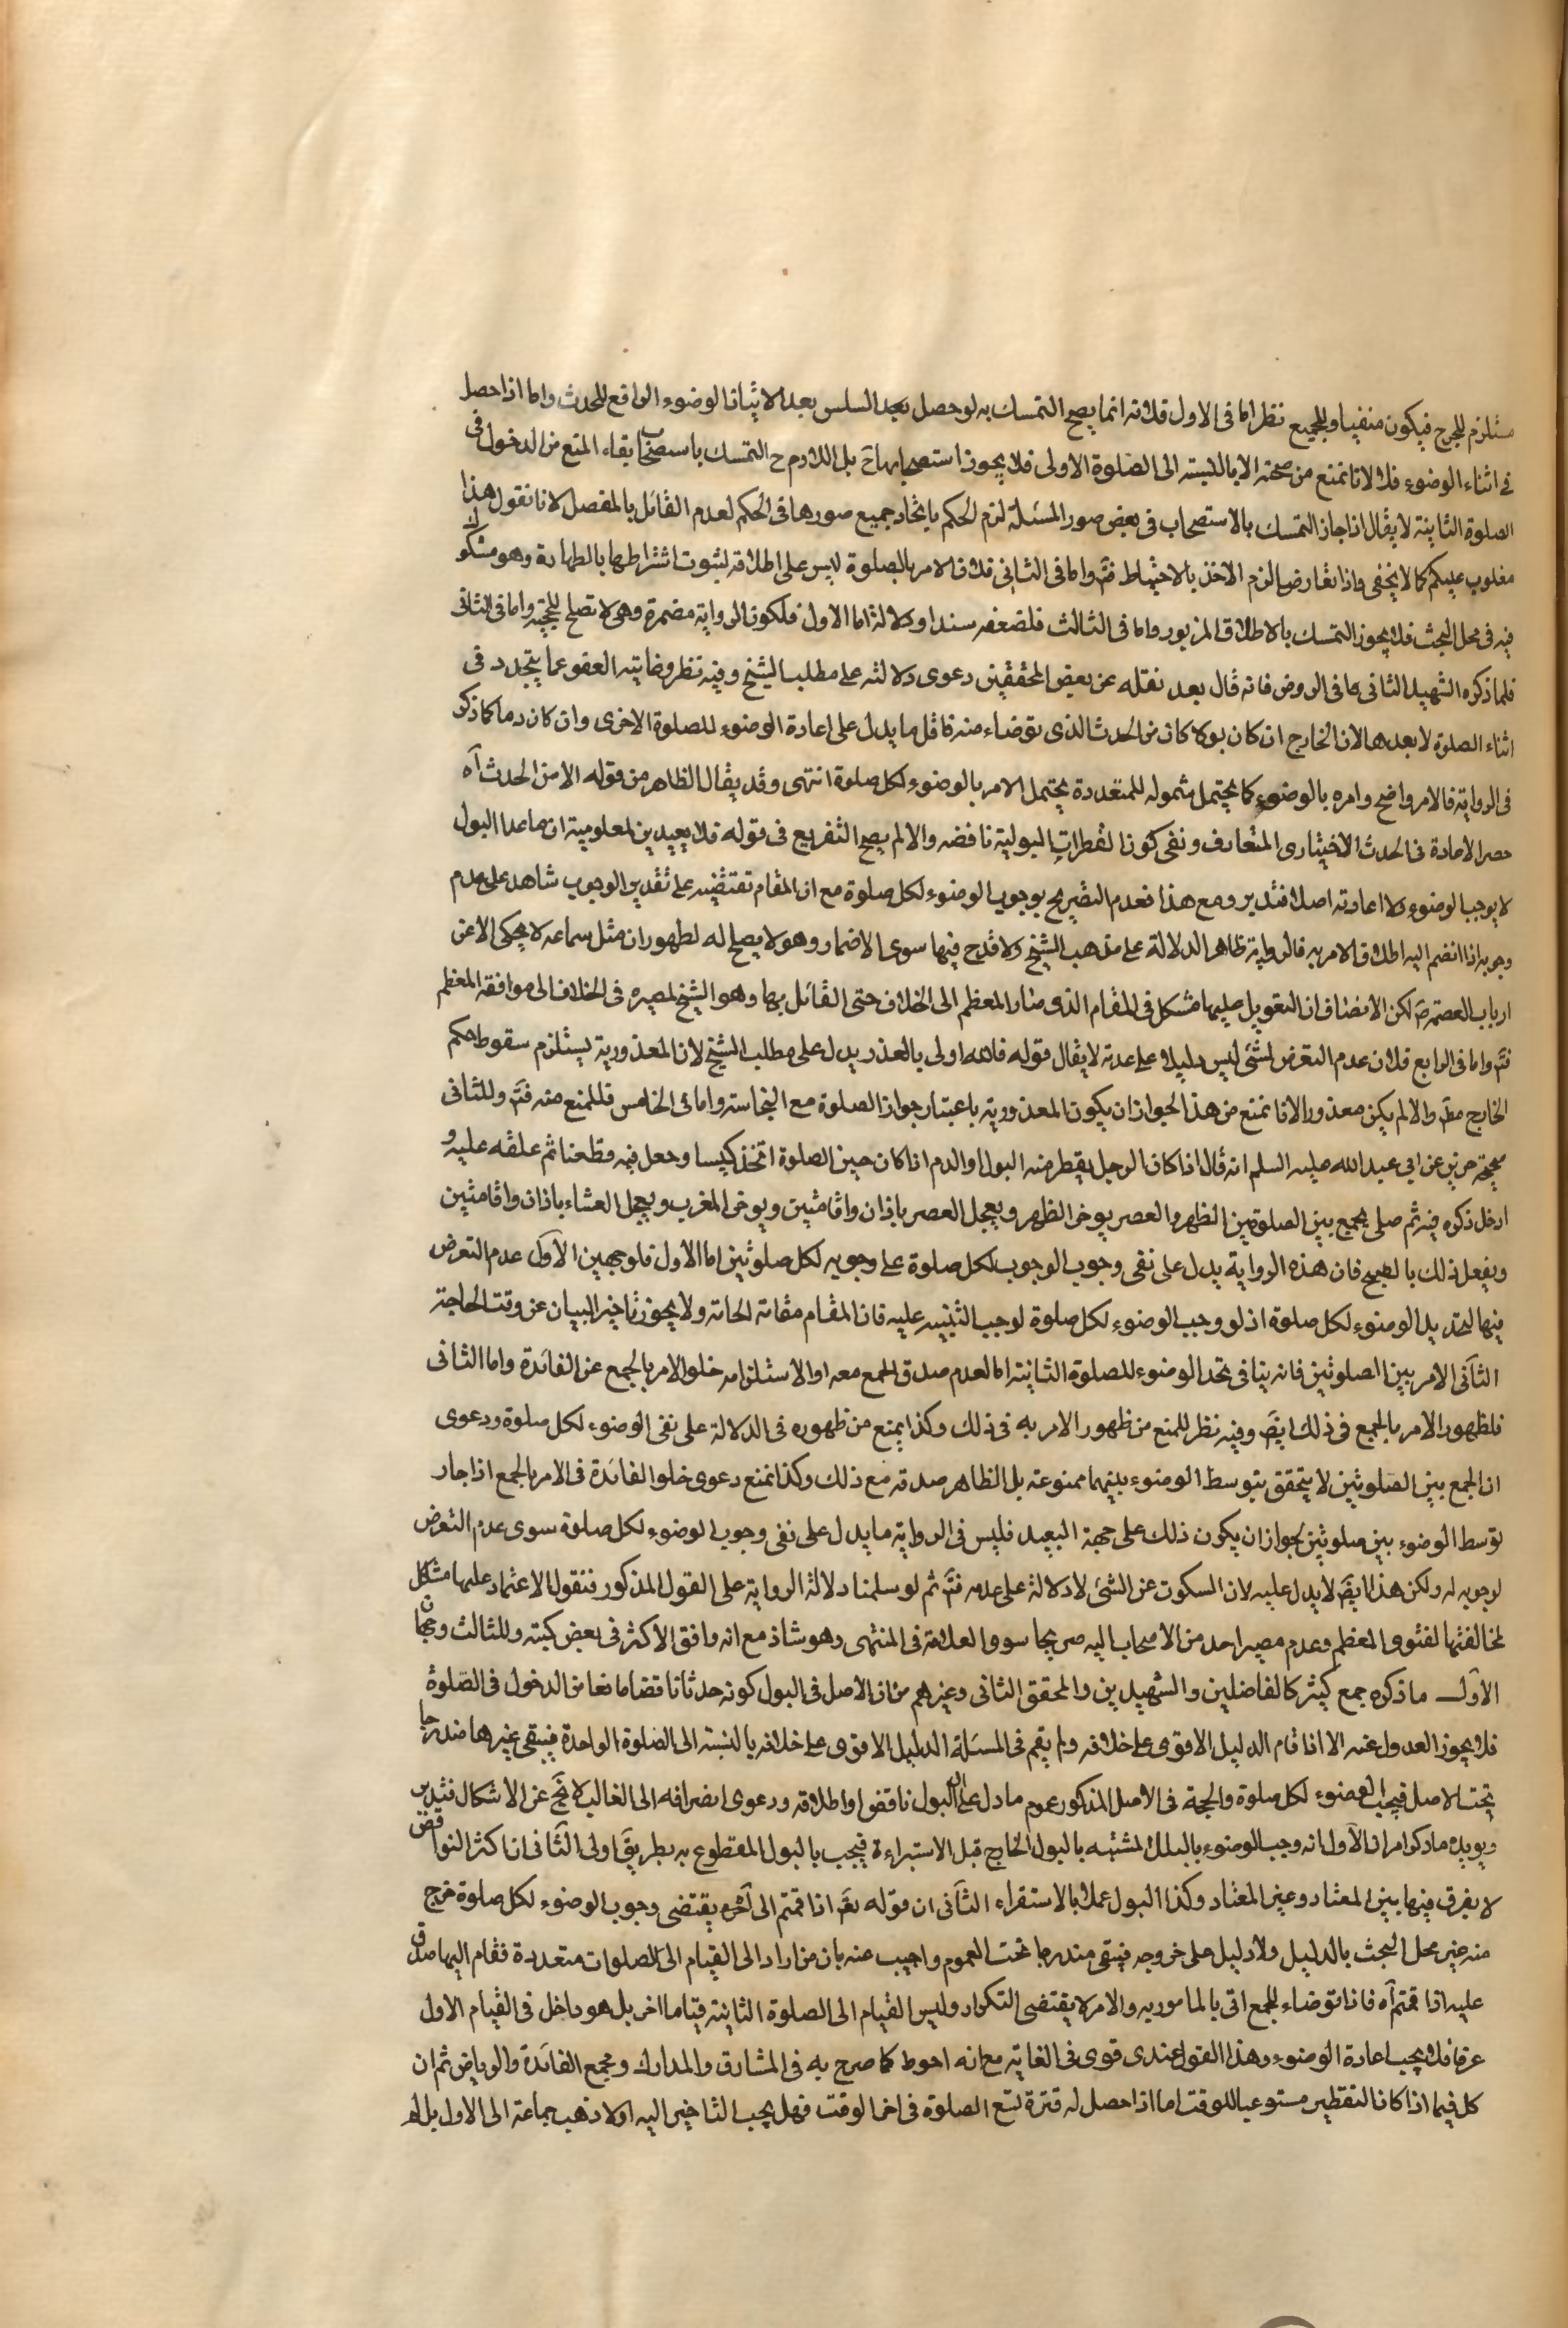 مستلزم للحرج فيكون منفيا وللجميع نظر اما فى الاول فلانه انما يصح التمسك به لو حصل بعيد السلس بعد الاتيانا لوضوء الواقع للحدث واما اذا حصل
فى اثناء الوضوء فلا لانا نمنع من صحته الا بالنسبته الى الصلوة الاولى فلا يجوز استصحابها ح بل اللازم ح التمسك باستصحاب بقاء المنع من الدخول فى
الصلوة الثانية لا يقال اذا جاز التمسك بالاستصحاب فى بعض صور المسئلة لزم الحكم باتحاد جميع صورها فى الحكم لعدم القائل بالمفصل لانا نقول هذا
مغلوب عليكم كما لا يخفى واذا تعارضا لزم الاخذ بالاحتياط فتم واما فى الثانى فلان الامر بالصلوة ليس على اطلاقه لثبوت اشتراطها بالطهارة وهو مشكوك
فيه فى محل البحث فلا يجوز التمسك بالاطلاق المزبور واما فى الثالث فلضعفه سندا ودلالة اما الاول فلكون الرواية مضمرة وهى لا تصلح للحجة واما فى الثانى
فلما ذكره الشهيد الثانى ما فى الروض فانه قال بعد نقله عن بعض المحققين دعوى دلالته على مطلب الشيخ وفيه نظر وغايته العفو عما يتجدد فى
اثناء الصلوة لا بعدها لان الخارج ان كان بولا كان من الحدث الذى يتوضاء منه فاقل ما يدل على اعادة الوضوء للصلوة الاخرى وان كان دما كما ذكر
فى الرواية فالامر واضح وامره بالوضوء كما يحتمل شموله للمتعددة يحتمل الامر بالوضوء لكل صلوة انتهى وقد يقال الظاهر من قوله الا من الحدث آه
حصر الاعادة فى الحدث الاختيارى المتعارف ونفى كون القطرات البولية ناقضه والا لم يصح التفريع فى قوله فلا يعيدين لمعلومية ان ما عدا البول
لا يوجب الوضوء ولا اعادته اصلا فتدبر ومع هذا فعدم التصريح بوجوب الوضوء لكل صلوة مع ان المقام تقتضيه على تقدير الوجوب شاهد على عدم
وجوبه اذا انضم اليه اطلاق الامر به فالرواية ظاهر الدلالة على مذهب الشيخ ولا قدح فيها سوى الاضمار وهو لا يصلح له لظهور ان مثل سماعه لا يحكى الا عن
ارباب العصمة ع لكن الانصاف ان التعويل عليها مشكل فى المقام الذى صار المعظم الى الخلاف حتى القائل بها وهو الشيخ لمصيره فى الخلاف الى موافقة المعظم
فتم واما فى الرابع فلان عدم التعرض لشئ ليس دليلا على عدمه لا يقال قوله فالله اولى بالعذر يدل على مطلب الشيخ لان المعذورية يستلزم سقوط حكم
الخارج مط والا لم يكن معذورا لانا نمنع من هذا لجواز ان يكون المعذورية باعتبار جواز الصلوة مع النجاسة واما فى الخامس فللمنع منه فتم وللثانى
صحيحة حريز عن ابى عبد الله عليه السلم انه قال اذا كان الرجل يقطر منه البول والدم اذا كان حين الصلوة اتخذ كيسا وجعل فيه قطعنا ثم علقه عليه و
ادخل ذكره فيه ثم صلى يجمع بين الصلوتين الظهر والعصر يوخر الظهر ويعجل العصر باذان واقامتين ويوخر المغرب ويعجل العشاء باذان واقامتين
ويفعل ذلك بالصبح فان هذه الرواية يدل على نفى وجوب الوجوب لكل صلوة على وجوبه لكل صلوتين اما الاول فلوجهين الاول عدم التعرض
فيها لتجديد الوضوء لكل صلوة اذ لو وجب الوضوء لكل صلوة لوجب التنبيه عليه فان المقام مقامة الحاجة ولا يجوز تاخير البيان عن وقت الحاجة
الثانى الامر بين الصلوتين فانه ينافى تجدد الوضوء للصلوة الثانية اما لعدم صدق الجمع معه اوالاستلزامه خلوا لامر بالجمع عن الفائدة واما الثانى
فلظهور الامر بالجمع فى ذلك ايض وفيه نظر للمنع من ظهور الامر به فى ذلك وكذا يمنع من ظهوره فى الدلالة على نفى الوضوء لكل صلوة ودعوى
ان الجمع بين الصلوتين لا يتحقق بتوسط الوضوء بينهما ممنوعة بل الظاهر صدقه مع ذلك وكذا نمنع دعوى خلوا لفائدة فى الامر بالجمع اذا جاز
توسط الوضوء بين صلوتين لجواز ان يكون ذلك على جهة التعبد فليس فى الرواية ما يدل على نفى وجوب الوضوء لكل صلوة سوى عدم التعرض
لوجوبه له ولكن هذا ايض لا يدل عليه لان السكوت عن الشئ لا دلالة على عدمه فتم ثم لو سلمنا دلالة الرواية على القول المذكور فنقول الاعتماد عليها مشكل
لمخالفتها لفتوى المعظم وعدم مصير احد من الاصحاب اليه صريحا سوى العلامة فى المنتهى وهو شاذ مع انه وافق الاكثر فى بعض كتبه وللثالث وجهان
الاول ما ذكره جمع كثير كالفاضلين والشهيدين والمحقق الثانى وغيرهم من ان الاصل فى البول كونه حدثا ناقضا مانعا من الدخول فى الصلوة
فلا يجوز العدول عنه الا اذا قام الدليل الاقوى على خلافه ولم يقم فى المسئلة الدليل الاقوى على خلافه بالنسبة الى الصلوة الواحدة فيبقى غيرها مندرجا
تحت الاصل فيجب الوضوء لكل صلوة والحجة فى الاصل المذكور عموم ما دل على ان البول ناقض او اطلاقه ودعوى انصرافه الى الغالب لا تخ عن الاشكال فتدبر
ويويده ما ذكر امران الاول انه وجب الوضوء بالبلل المشتبه بالبول الخارج قبل الاستبراءة فيجب بالبول المقطوع به بطريق اولى الثانى ان اكثر النواقض
لا يفرق فيها بين المعتاد وغير المعتاد وكذا البول عملا بالاستقراء الثانى ان قوله تع اذا قمتم الى آخره يقتضى وجوب الوضوء لكل صلوة خرج
منه غير محل البحث بالدليل ولا دليل على خروجه فيبقى مندرجا تحت العموم واجيب عنه بان من اراد الى القيام الى الصلوات متعددة فقام اليها صدق
عليه اذا قمتم آه فاذا توضاء للجمع اتى بالمامور به والامر لا يقتضى التكرار وليس القيام الى الصلوة الثانية قياما اخر بل هو داخل فى القيام الاول
عرفا فلا يجب اعادة الوضوء وهذا القول عندى قوى فى الغاية مع انه احوط كما صرح به فى المشارق والمدارك ومجمع الفائدة والرياض ثم ان
كل فيما اذا كان التقطير مستوعبا للوقت اما اذا حصل له فترة تسع الصلوة فى اخر الوقت فهل يجب التاخير اليه اولا ذهب جماعة الى الاول بل له